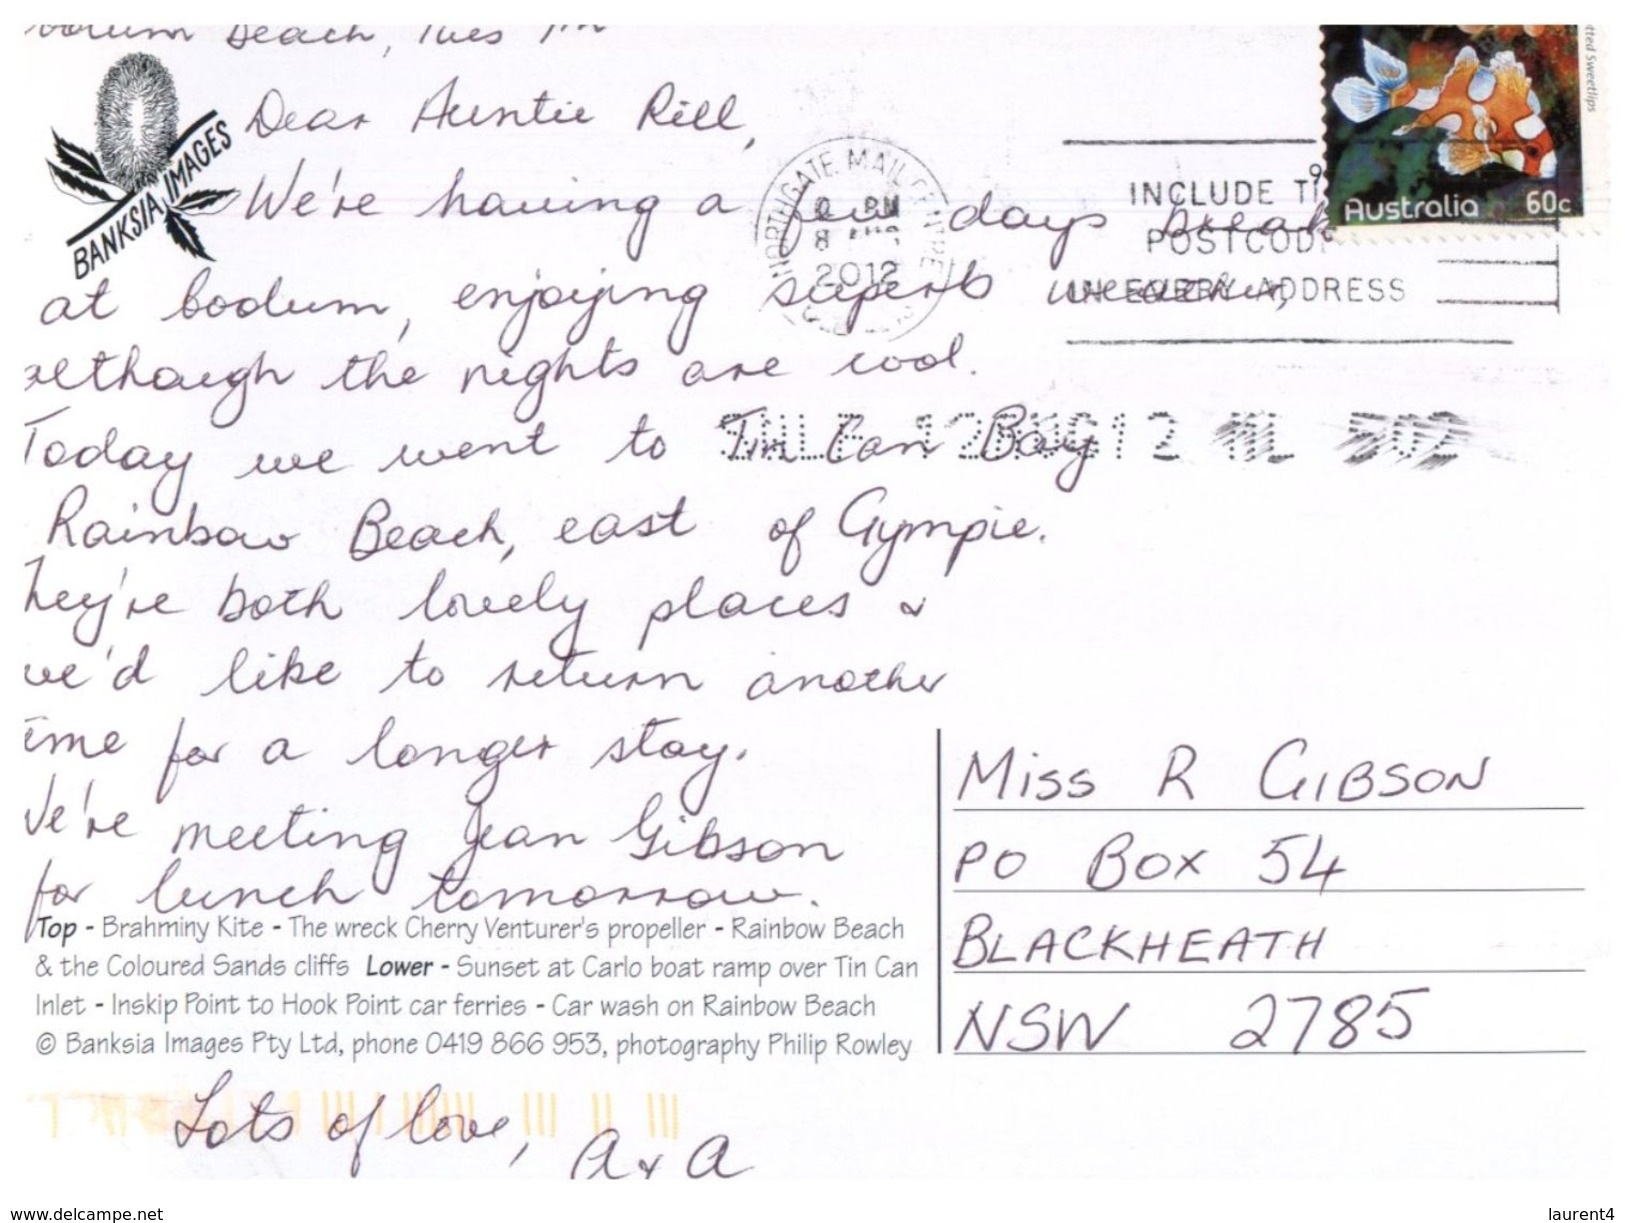 Beach, Tues 7th
BANKSIA IMAGES
Dear Auntie Rill,
We're having a few days break
at bodum, enjoying superb weather,
although the nights are cool.
Today we went to Tin Can Bay
Rainbow Beach, east of Gympie.
hey're both lovely places &
we'd like to return another
ime for a longer stay.
We're meeting Jean Gibson
for lunch tomorrow.
Top - Brahminy Kite - The wreck Cherry Venturer's propeller - Rainbow Beach
& the Coloured Sands cliffs Lower - Sunset at Carlo boat ramp over Tin Can
Inlet - Inskip Point to Hook Point car ferries - Car wash on Rainbow Beach
© Banksia Images Pty Ltd, phone 0419 866 953, photography Philip Rowley
Lots of love,
A & A
tted Sweetlips
Australia 60c
NORTHGATE MAIL CENTRE
PM
8 AUG
2012
INCLUDE T
POSTCOD
IN EVERY ADDRESS
12 502
MISS R GIBSON
PO BOX 54
BLACKHEATH
NSW 2785
www.delcampe.net
laurent4